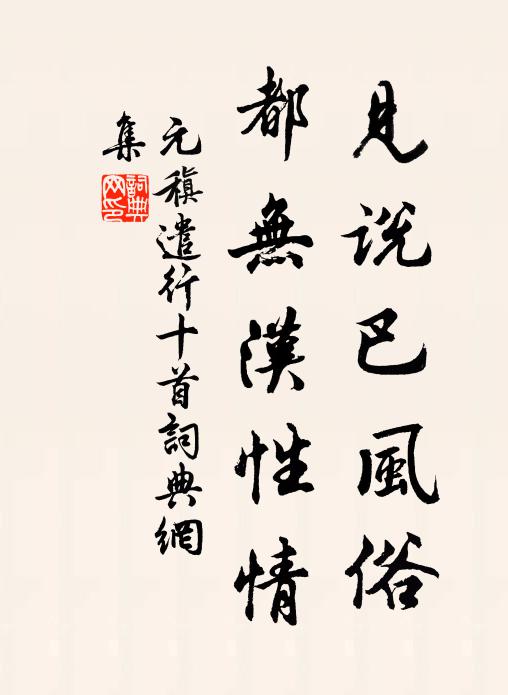 見説巴風俗
都無漢性情
元稹遣行十首詞典網
集
詞典網印